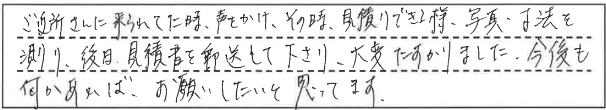 ご近所さんに来られてた時、声をかけ、その時、見積りできる様、写真・寸法を
測り、後日、見積書を郵送して下さり、大変たすかりました。今後も
何かあれば、お願いしたいと思ってます。